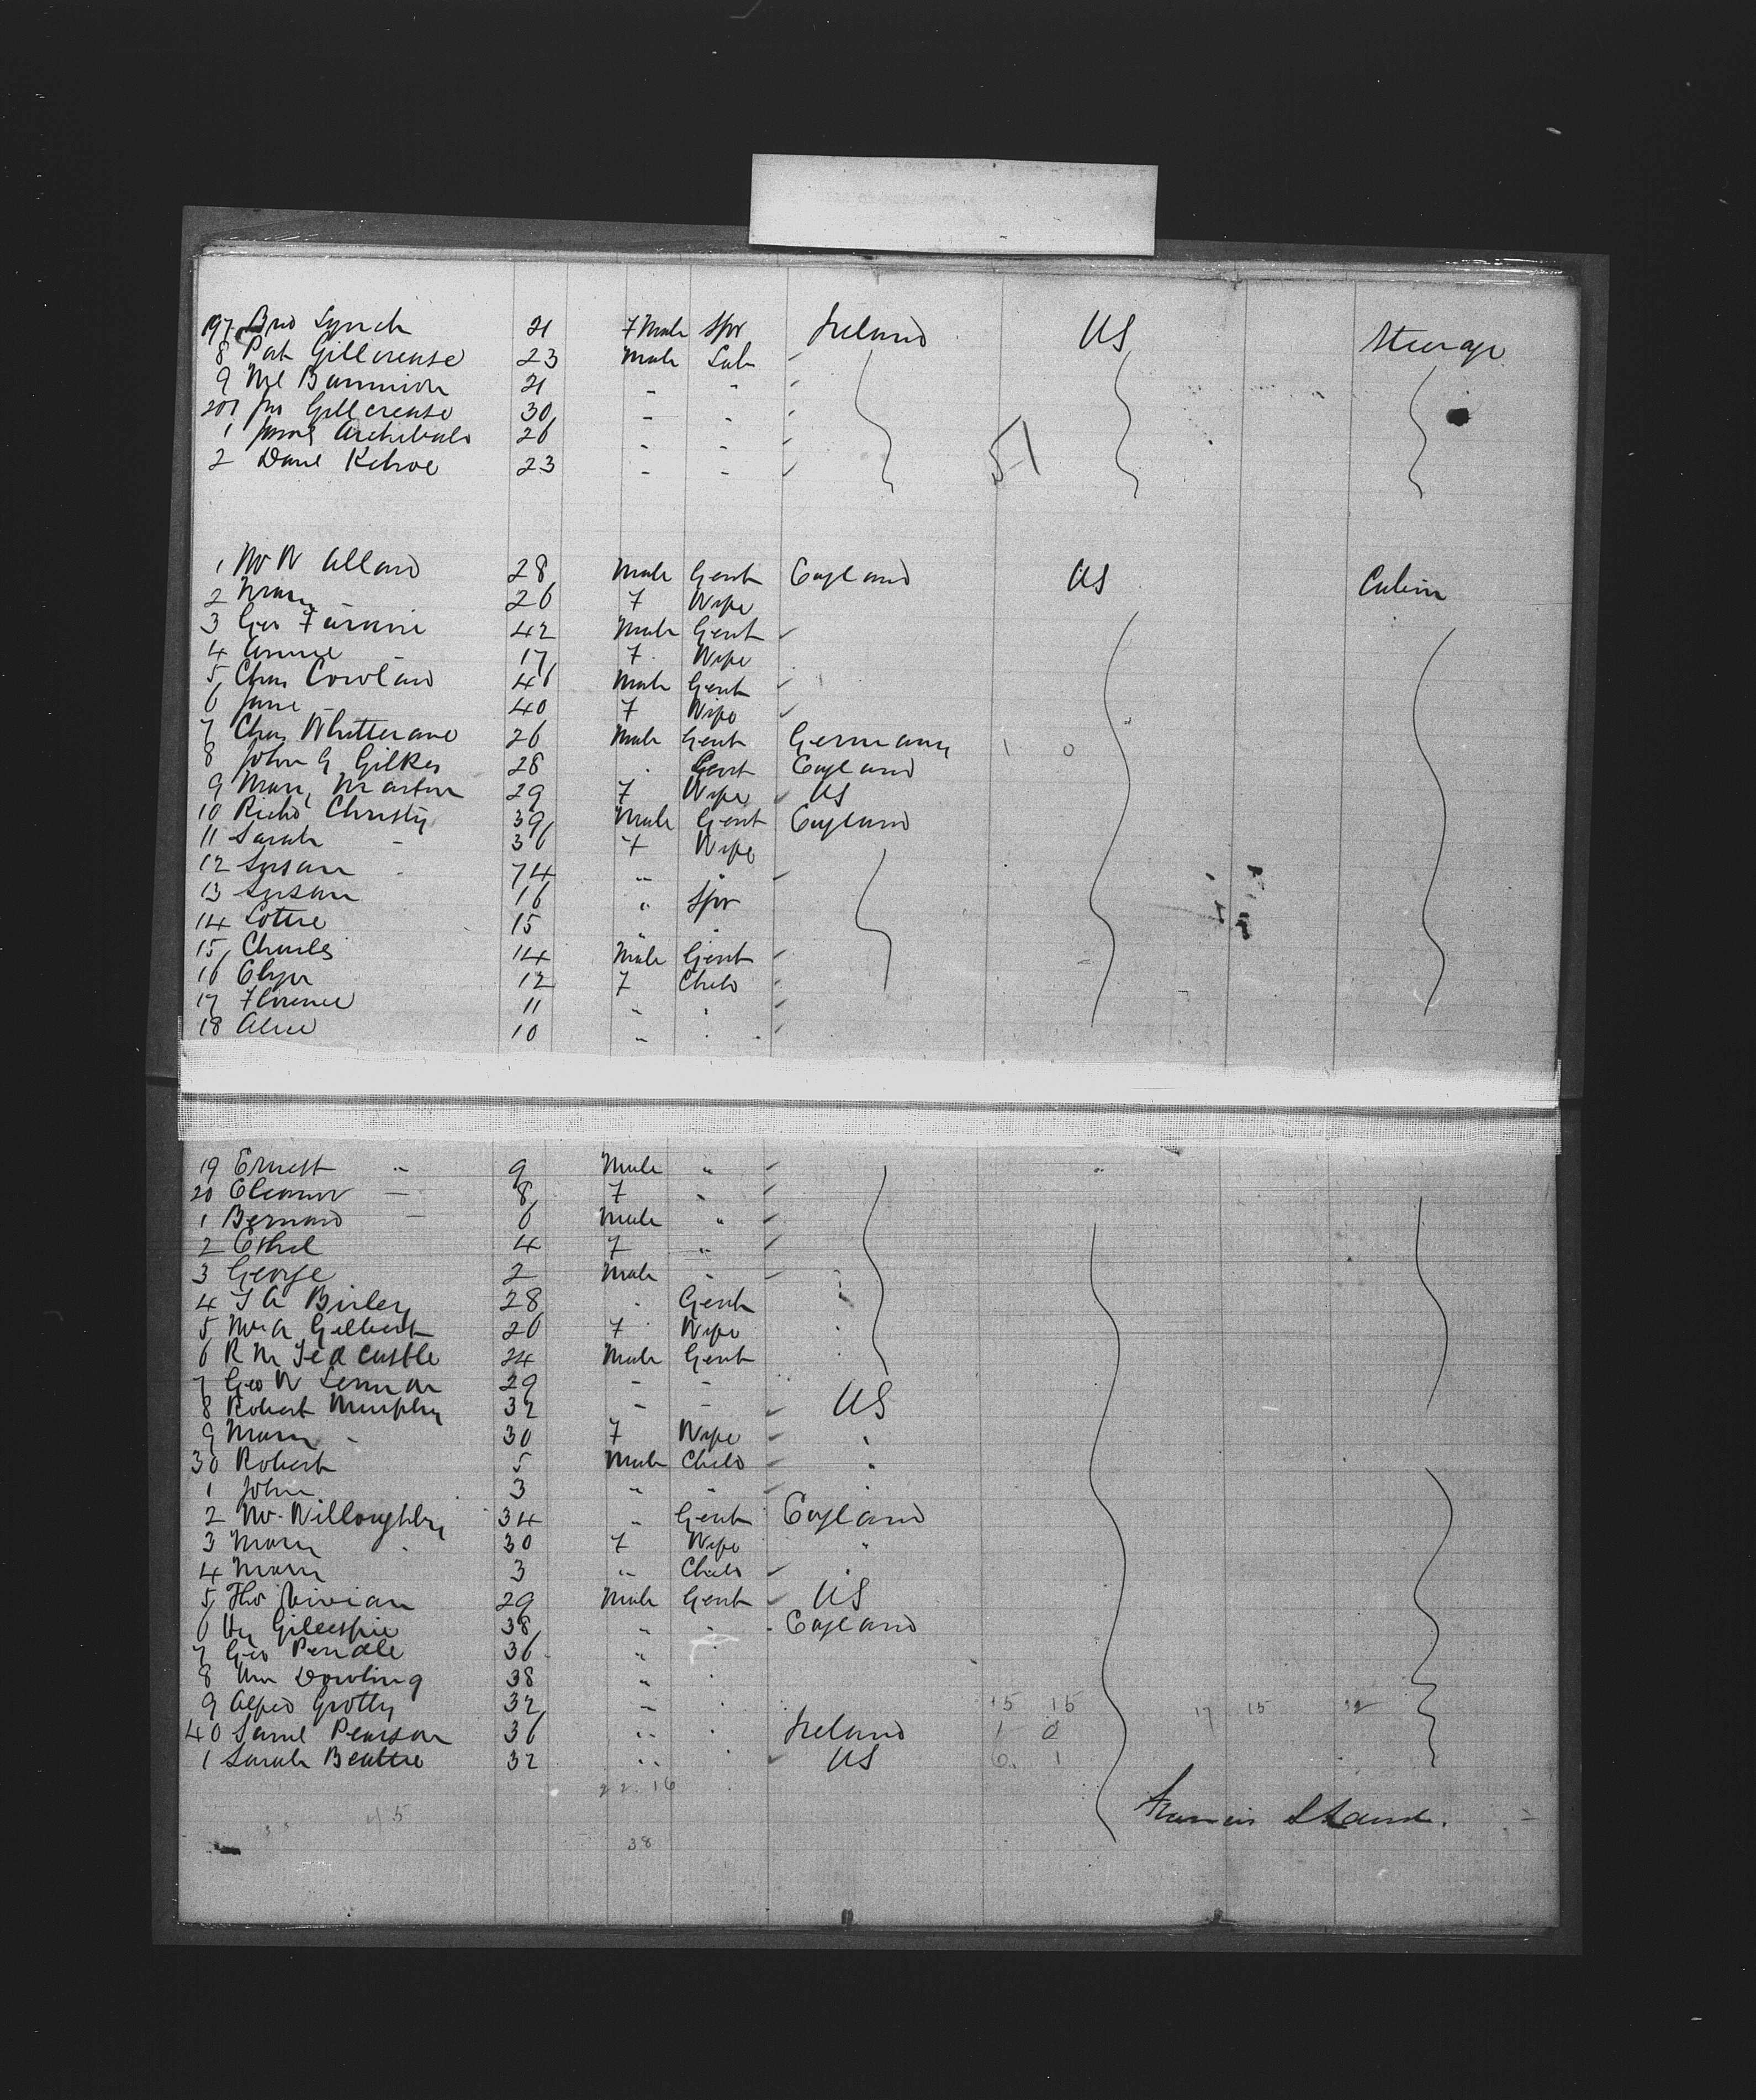 197 Brid Lynch 21 F Male Spr Ireland US Steerage
8 Pat Gillcrease 23 Male Lab
9 Ml Bannion 21 - "
200 Jno Gillcrease 30 - -
1 James Archibald 26 - -
2 Danl Kehoe 23 - -
51
1 Mr W Allard 28 Male Gent England US Cabin
2 Mary 26 F Wife
3 Geo 42 Male Gent
4 Annie - 17 F Wife
5 Chas Cowland 46 Male Gent
6 Jane - 40 F Wife
7 Chas 26 Male Gent Germany 1 0
8 John G Gilkes 28 " Gent England
9 Mary Martin 29 F Wife US
10 Richd Christy 39 Male Gent England
11 Sarah - 36 F Wife
12 Susan " 74 " "
13 Susan 16 " Spr
14 Lottie 15 " "
15 Charles 14 Male Gent
16 12 F Child
17 Florence 11 " "
18 Alice 10 " "
19 Ernest " 9 Male "
20 Eleanor - 8 F "
1 Bernard - 6 Male "
2 Ethel 4 F "
3 George 2 Male "
4 J A Birley 28 " Gent
5 Mrs A Gilbert 26 F Wife
6 R M Jedcastle 24 Male Gent
7 Geo W 29 - -
8 Robert Murphy 32 - - US
9 Mary - 30 F Wife "
30 Robert 5 Male Child "
1 John 3 " "
2 Mr Willoughby 34 " Gent England
3 Mary " 30 F Wife "
4 Mary 3 " Child "
5 Thos Vivian 29 Male Gent US
6 Hy Gillespie 38 " " England
7 Geo Pendle 36 " "
8 Wm Dowling 38 " "
9 Alfred Grotty 32 " " 15 15 17 15 32
40 Saml Pearson 36 " " Ireland 1 0
1 Sarah Beattie 32 " " US 6 1
22 16
Francis
45
38